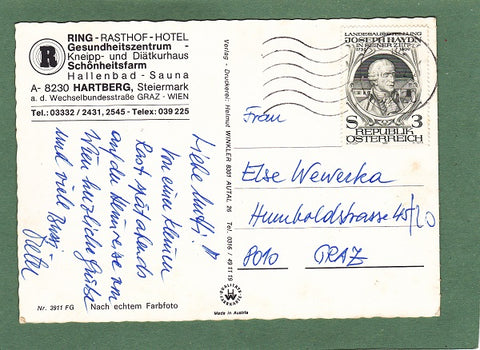 RING - RASTHOF - HOTEL
Gesundheitszentrum -
Kneipp- und Diätkurhaus
Schönheitsfarm
Hallenbad - Sauna
A- 8230 HARTBERG, Steiermark
a. d. Wechselbundesstraße GRAZ - WIEN
Tel.: 03332 / 2431, 2545 - Telex: 039 225
R
Liebe Mutti!
Von einer kleinen
Rast spät abends
auf der Heimreise von
Wien herzliche Grüße
und viele Bussi
Nr. 3911 FG Nach echtem Farbfoto
Verlag - Druckerei: Helmut WINKLER 8301 AUTAL 26 Tel. 0316 / 49 11 19
QUALITÄTS
W
Made in Austria
LANDESAUSSTELLUNG
JOSEPH HAYDN
IN SEINER ZEIT
S 3
REPUBLIK
ÖSTERREICH
Frau
Else Wewerka
Humboldtstrasse 45/20
8010 GRAZ